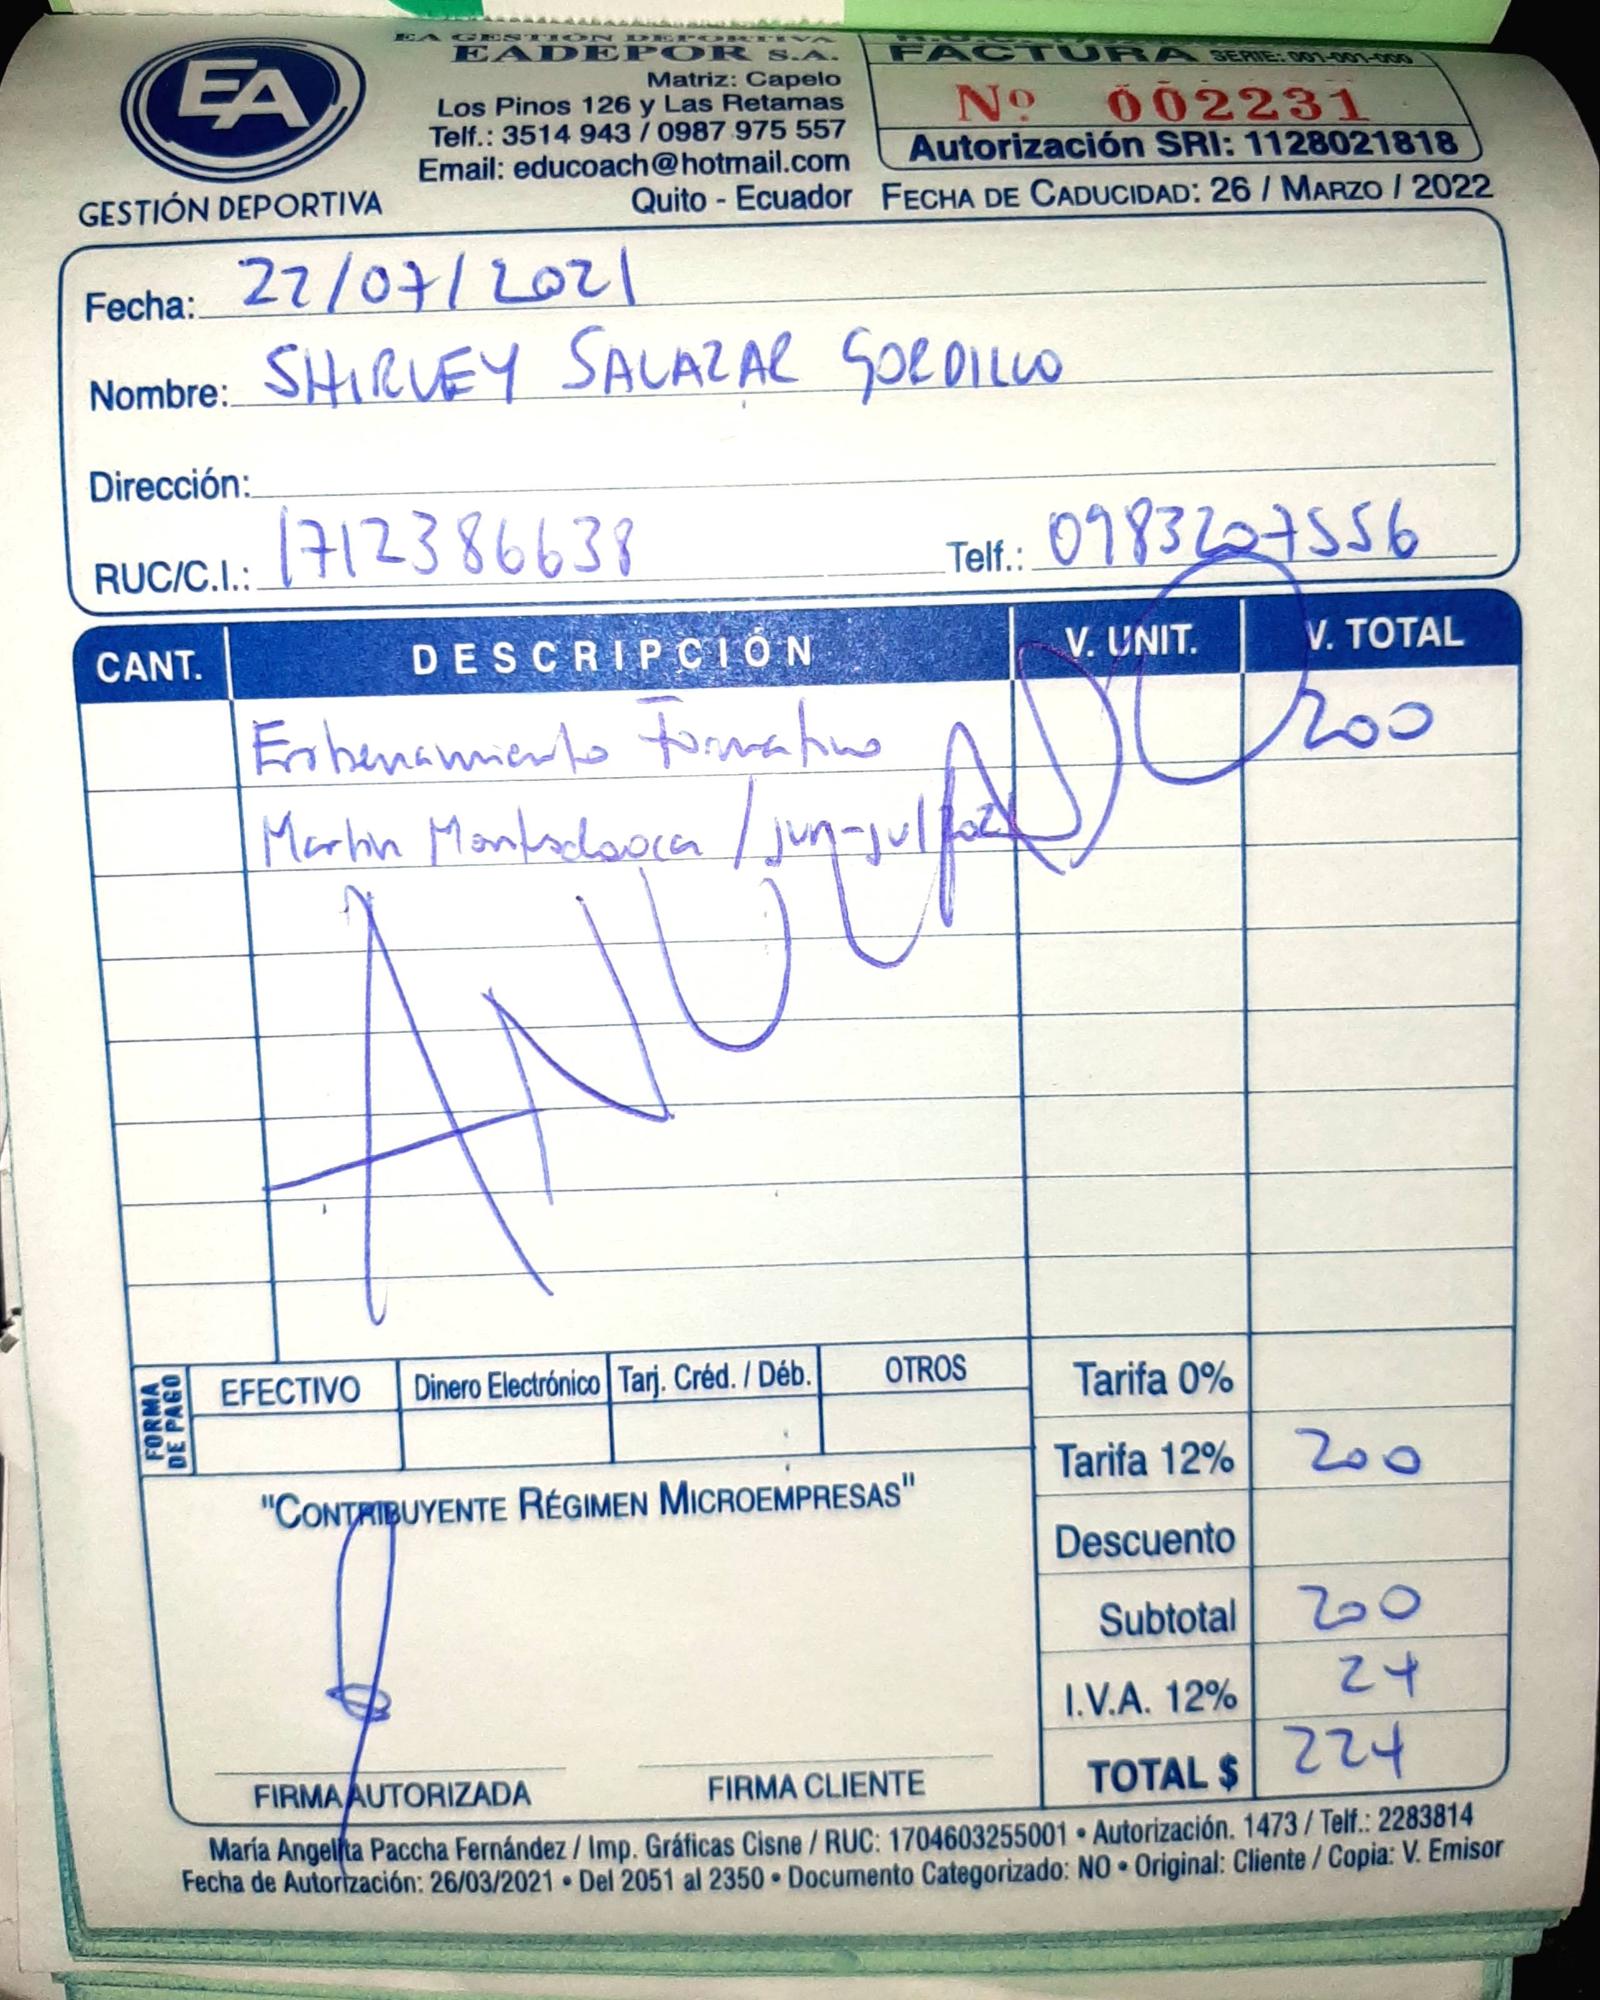 EA
GESTIÓN DEPORTIVA
EA GESTION DEPORTIVA
EADEPOR S.A.
Matriz: Capelo
Los Pinos 126 y Las Retamas
Telf.: 3514 943 / 0987 975 557
Email: educoach@hotmail.com
Quito - Ecuador
FACTURA SERIE: 001-001-000
Nº 002231
Autorización SRI: 1128021818
FECHA DE CADUCIDAD: 26 / MARZO / 2022
Fecha: 22/07/2021
Nombre: SHIRLEY SALAZAR GORDILLO
Dirección:
RUC/C.I.: 1712386638 Telf.: 0983207556
CANT. DESCRIPCIÓN V. UNIT. V. TOTAL
Entrenamiento Formativo 200
Martin / jun-jul
ANULADO
FORMA DE PAGO
EFECTIVO Dinero Electrónico Tarj. Créd. / Déb. OTROS
Tarifa 0%
Tarifa 12% 200
Descuento
Subtotal 200
I.V.A. 12% 24
TOTAL $ 224
"CONTRIBUYENTE RÉGIMEN MICROEMPRESAS"
FIRMA AUTORIZADA FIRMA CLIENTE
María Angelita Paccha Fernández / Imp. Gráficas Cisne / RUC: 1704603255001 • Autorización. 1473 / Telf.: 2283814
Fecha de Autorización: 26/03/2021 • Del 2051 al 2350 • Documento Categorizado: NO • Original: Cliente / Copia: V. Emisor